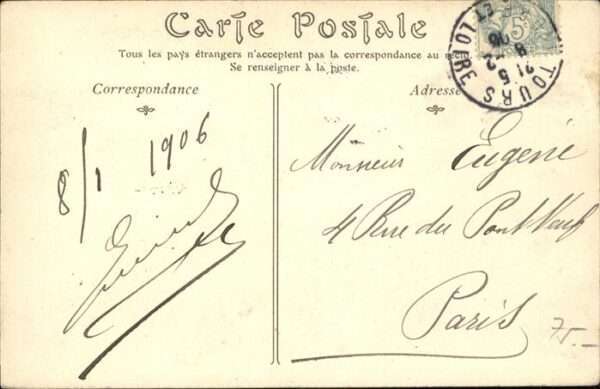 Carte Postale
Tous les pays étrangers n'acceptent pas la correspondance au
Se renseigner à la poste.
Correspondance
Adresse
8/1 1906
Monsieur Eugené
4 Rue du Pont Neuf
Paris
75.-
TOURS
LOIRE ET
5c